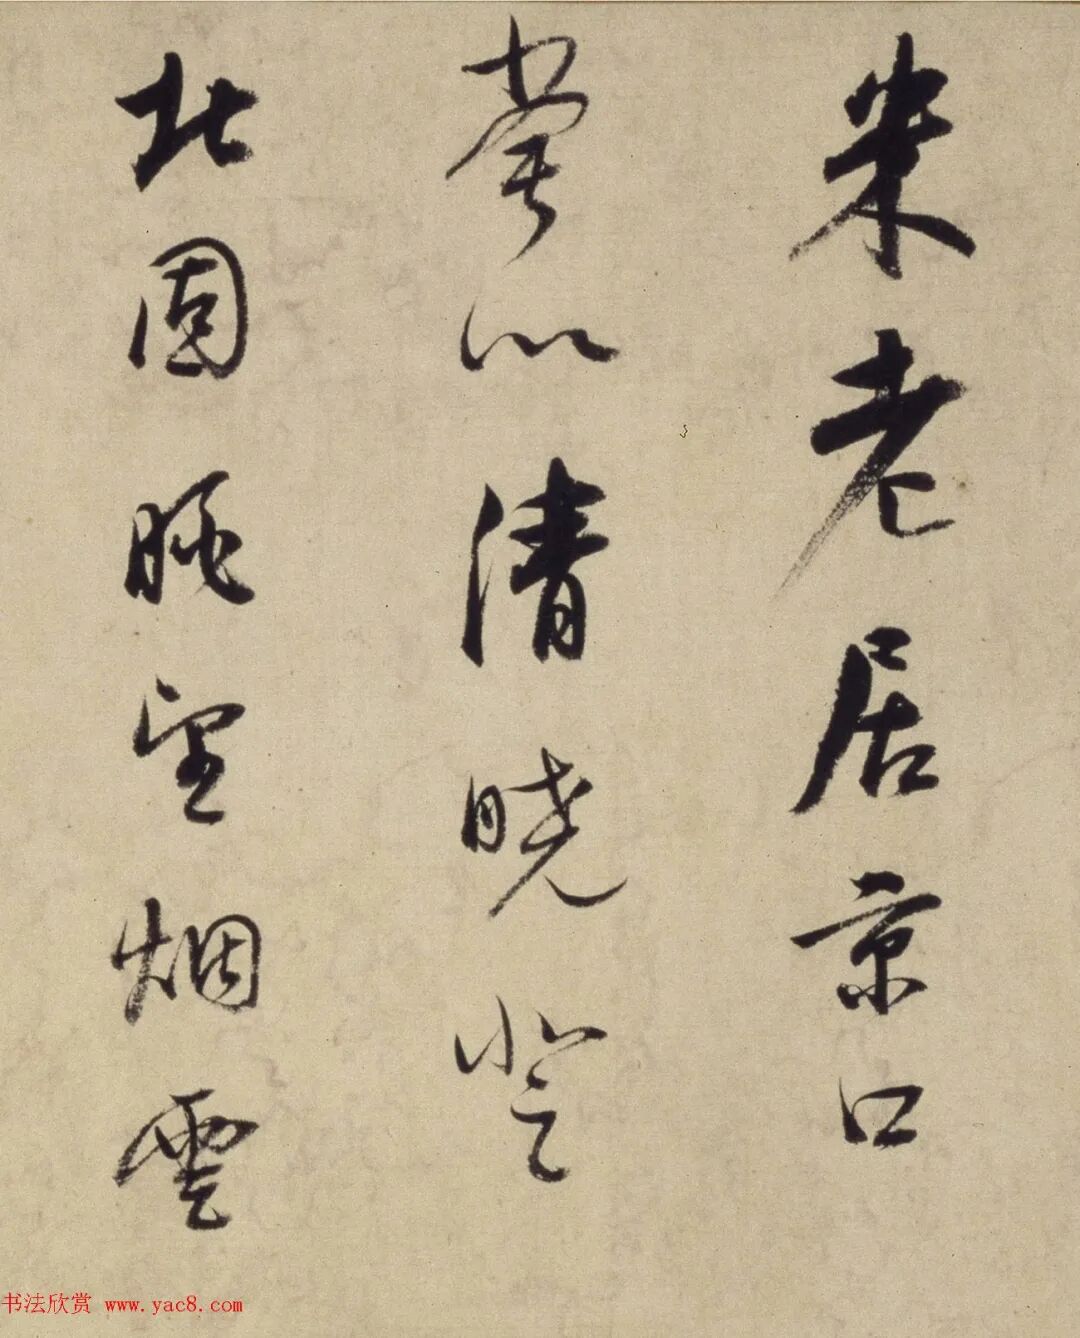 米老居京口
嘗以清曉登
北固眺望烟雲
书法欣赏 www.yac8.com